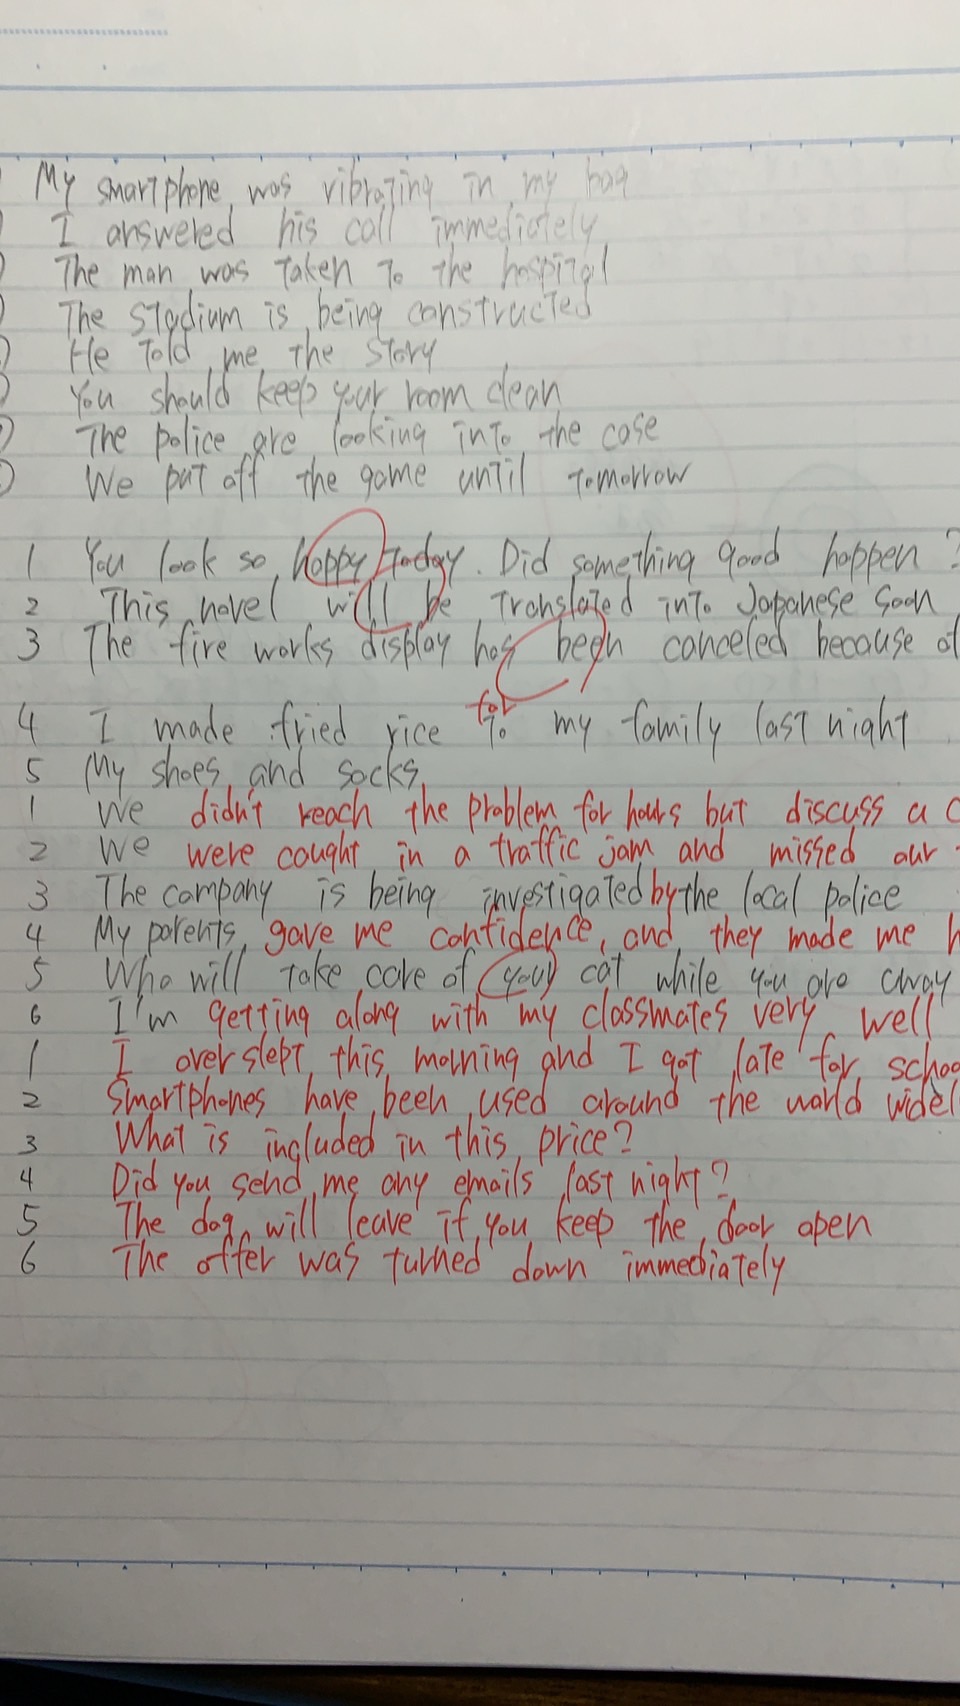 My smartphone was vibrating in my bag
I answered his call immediately
The man was taken to the hospital
The stadium is being constructed
He told me the story
You should keep your room clean
The police are looking into the case
We put off the game until tomorrow
1 You look so happy today. Did something good happen?
2 This novel will be translated into Japanese soon
3 The fire works display has been canceled because of
for
4 I made fried rice to my family last night
5 My shoes and socks
1 We didn't reach the problem for hours but discuss a
2 We were caught in a traffic jam and missed our
3 The company is being investigated by the local police
4 My parents gave me confidence, and they made me
5 Who will take care of your cat while you are away
6 I'm getting along with my classmates very well
1 I overslept this morning and I got late for schoo
2 Smartphones have been used around the world widel
3 What is included in this price?
4 Did you send me any emails last night?
5 The dog will leave if you keep the door open
6 The offer was turned down immediately